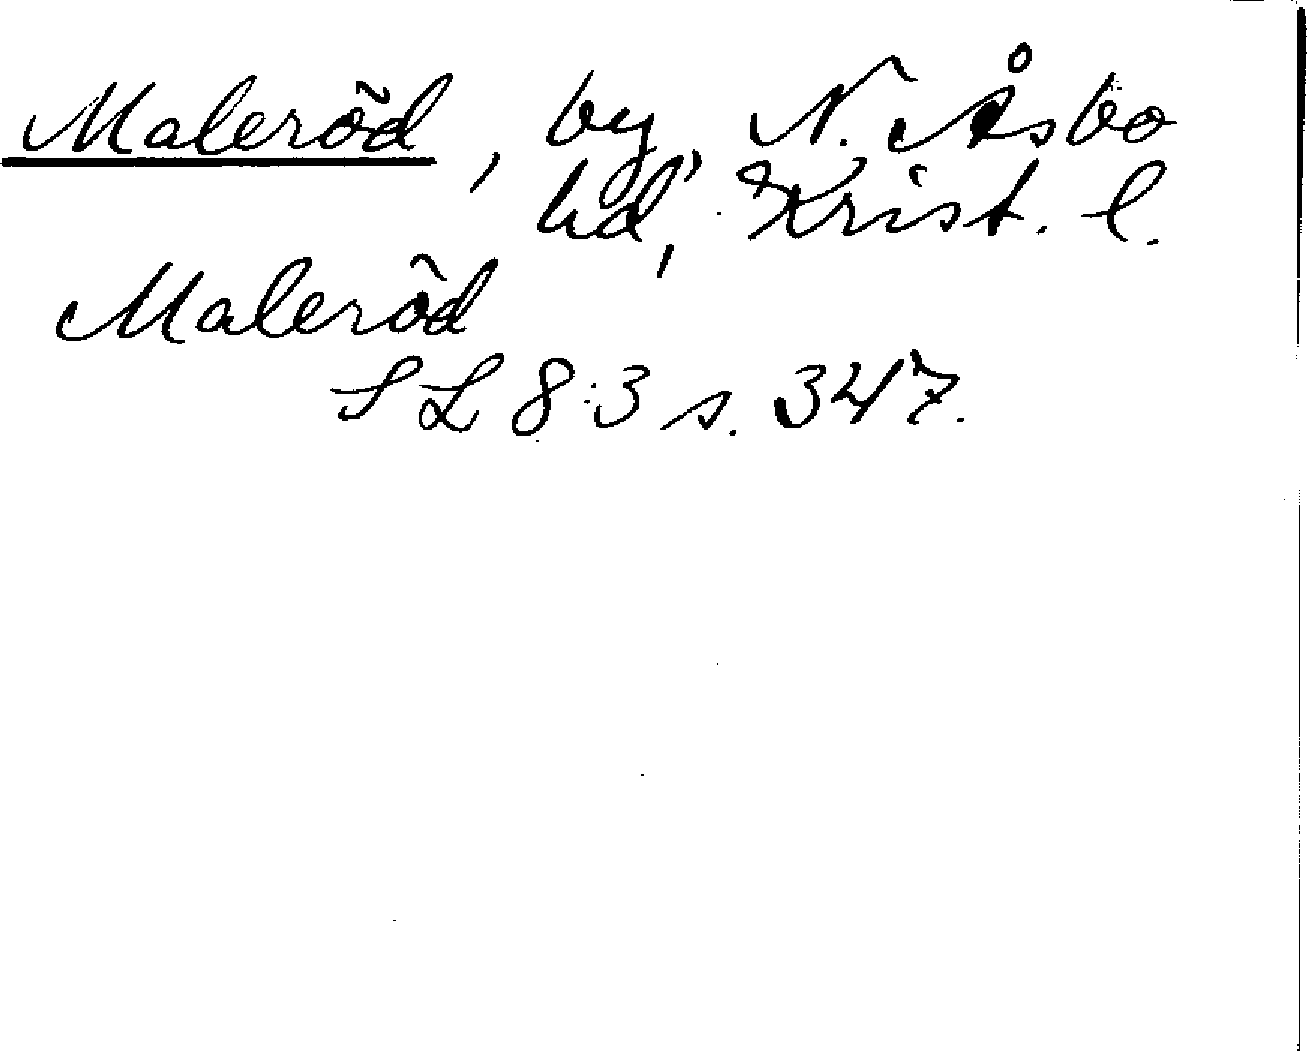 Maleröd, by, N. Åsbo
hd, Krist. l.
Maleröd
SL 8:3 s. 347.